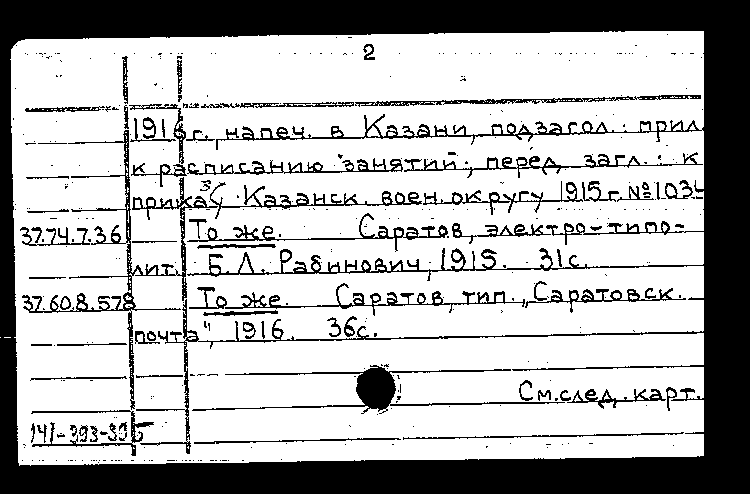 2
1916 г., напеч. в Казани, подзагол.: прил.
к расписанию занятий; перед загл.: к
приказу Казанск. воен. округу 1915 г. №
37.74.7.36 То же. Саратов, электро-типо-
лит. Б. Л. Рабинович, 1915. 31 с.
37.60.8.578 То же. Саратов, тип. „Саратовск.
почта", 1916. 36 с.
См. след. карт.
141-393-395